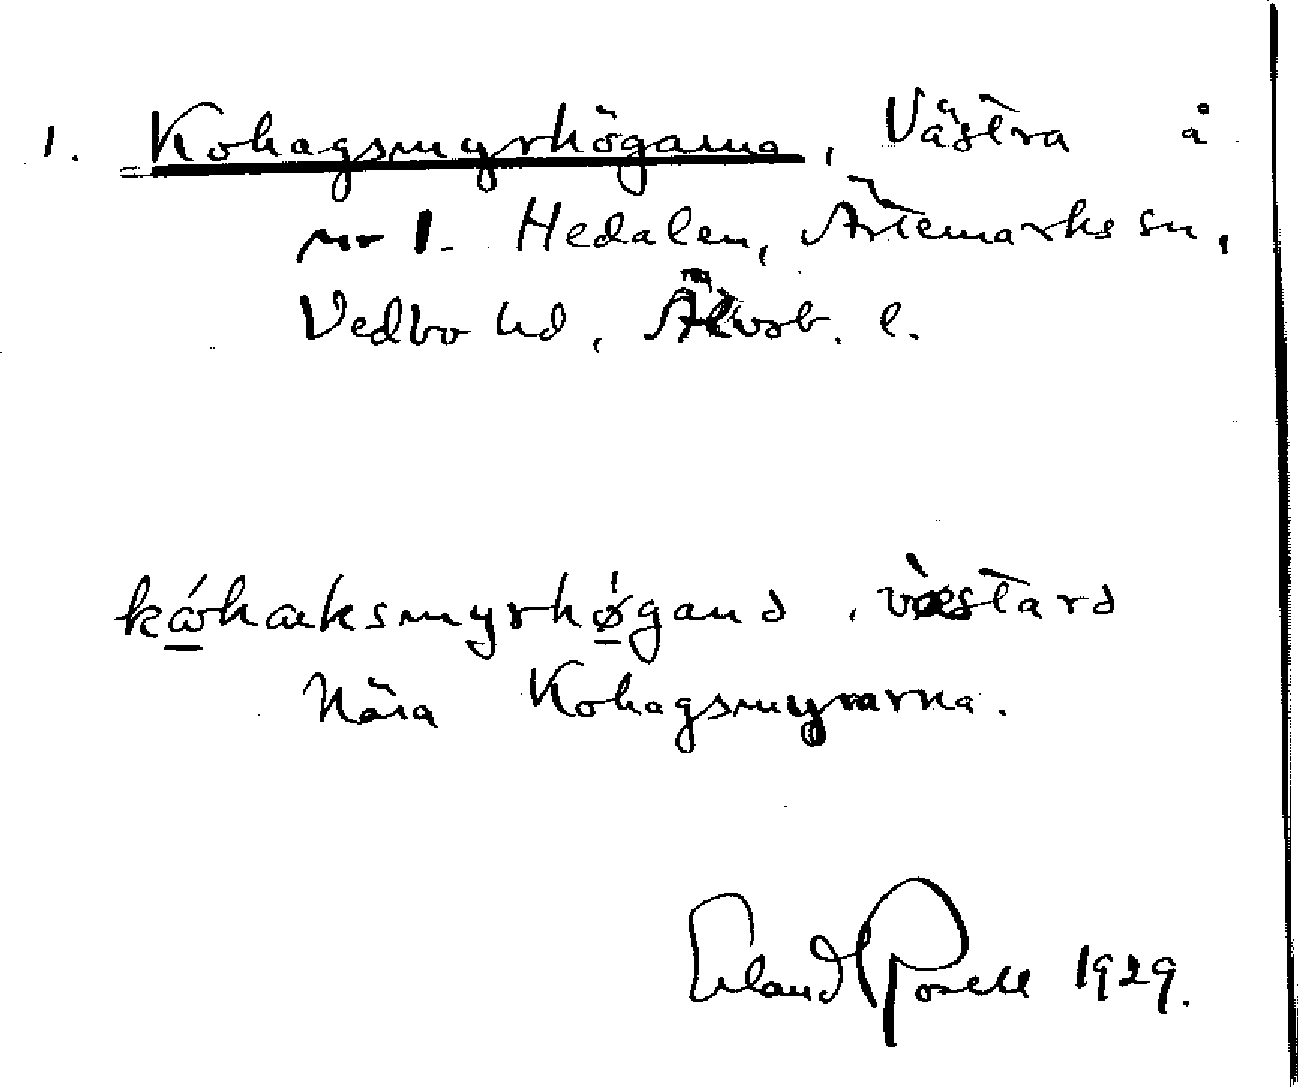 1. Kohagsmyrhögarna, Västra å
nr 1. Hedalen, Ärtemarks sn,
Vedbo hd, Älvsb. l.
kóhaksmyrhø̀ganə, væ̀starə
Nära Kohagsmyrarna.
Erland Rosell 1929.